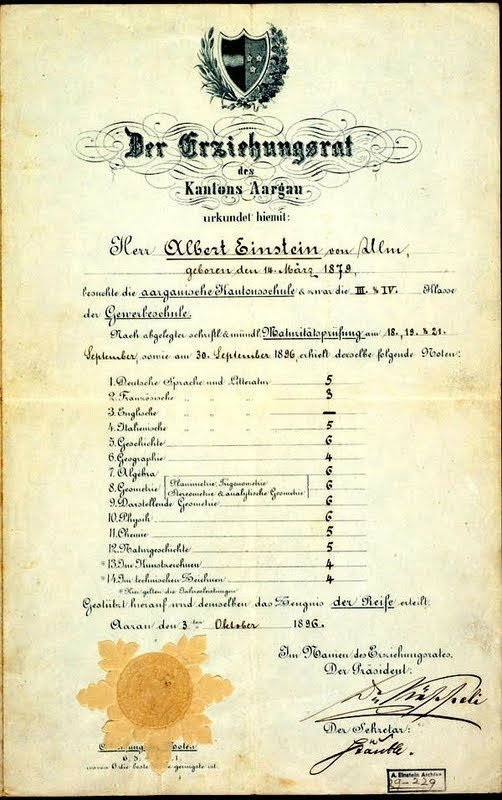 Der Erziehungsrat
des
Kantons Aargau
urkundet hiemit:
Herr Albert Einstein von Ulm,
geboren den 14. März 1879,
besuchte die aargauische Kantonsschule & zwar die III. & IV. Klasse
der Gewerbeschule.
Nach abgelegter schriftl. & mündl. Maturitätsprüfung am 18., 19. & 21.
September, sowie am 30. September 1896, erhielt derselbe folgende Noten:
1. Deutsche Sprache und Litteratur 5
2. Französische „ „ „ 3
3. Englische „ „ „ —
4. Italienische „ „ „ 5
5. Geschichte 6
6. Geographie 4
7. Algebra 6
8. Geometrie Planimetrie, Trigonometrie Stereometrie & analytische Geometrie 6
9. Darstellende Geometrie 6
10. Physik 6
11. Chemie 5
12. Naturgeschichte 5
*13. Im Kunstzeichnen 4
*14. Im technischen Zeichnen 4
*Hier gelten die Jahresleistungen
Gestützt hierauf wird demselben das Zeugnis der Reife erteilt.
Aarau den 3ten Oktober 1896.
Im Namen des Erziehungsrates,
Der Präsident:
Der Sekretär:
Noten
6, 5, 1.
wovon 6 die beste geringste ist.
A. Einstein Archive
29-229